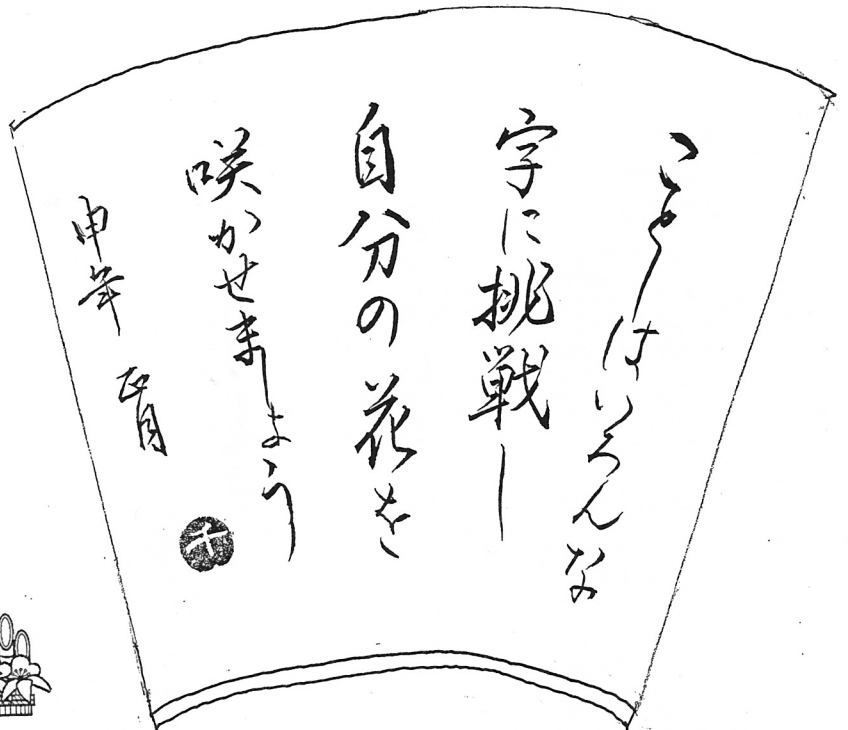 ことしはいろんな
字に挑戦し
自分の花を
咲かせましょう
申年 正月
千